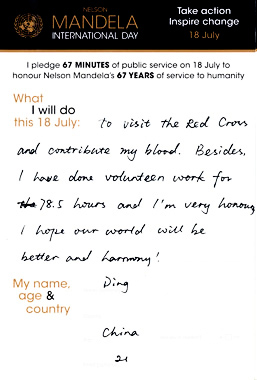 NELSON
MANDELA
INTERNATIONAL DAY
Take action
Inspire change
18 July
I pledge 67 MINUTES of public service on 18 July to
honour Nelson Mandela's 67 YEARS of service to humanity
What
I will do
this 18 July: to visit the Red Cross
and contribute my blood. Besides,
I have done volunteer work for
78.5 hours and I'm very honoug
I hope our world will be
better and harmony!
My name, Ding
age &
country
China
21